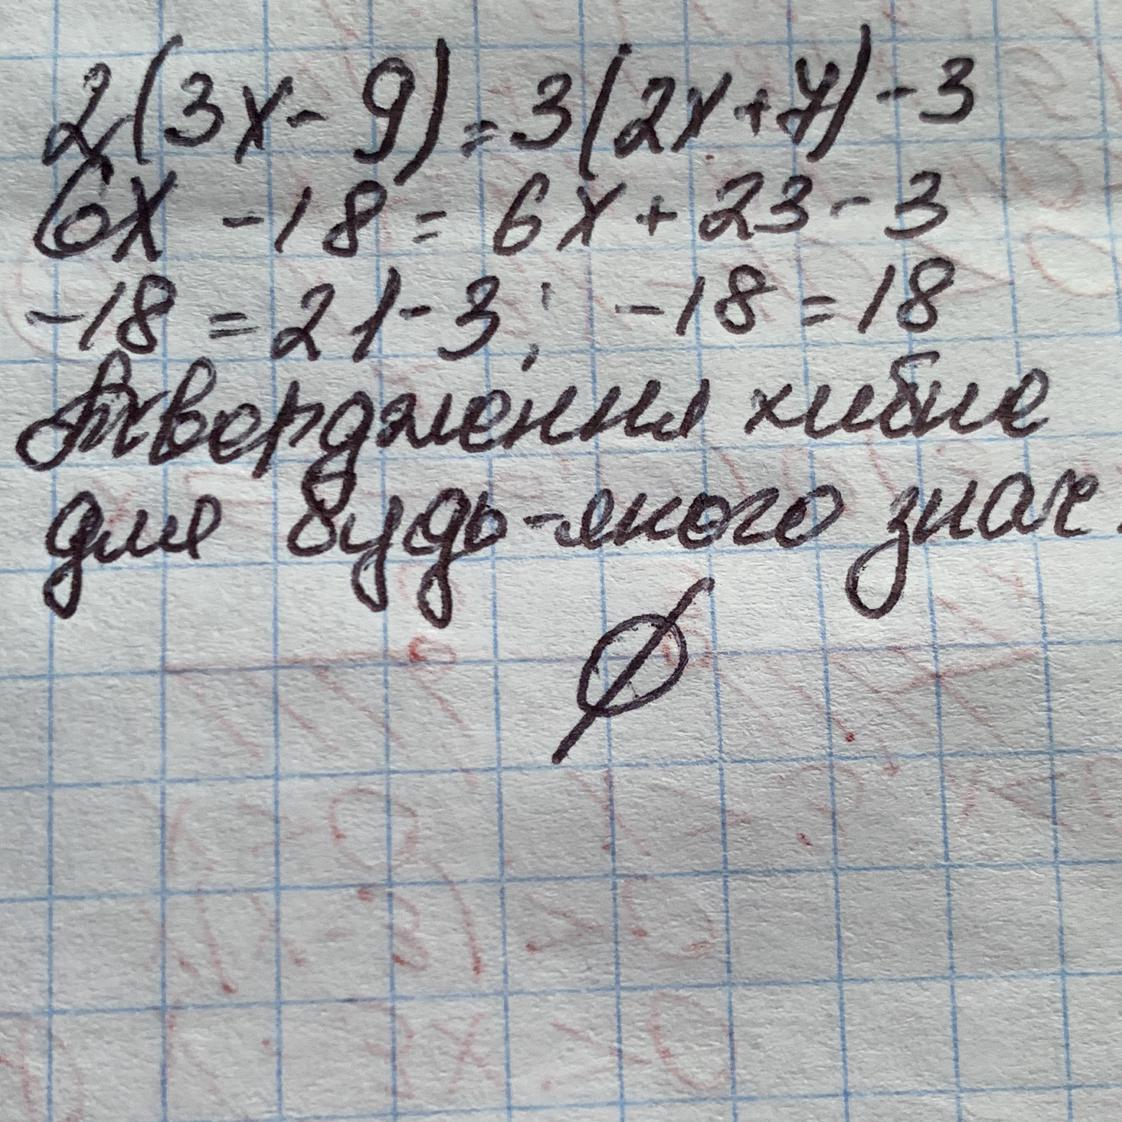 2(3x-9)=3(2x+7)-3
6x-18=6x+23-3
-18=21-3; -18=18
Твердження хибне
для будь-якого знач.
∅